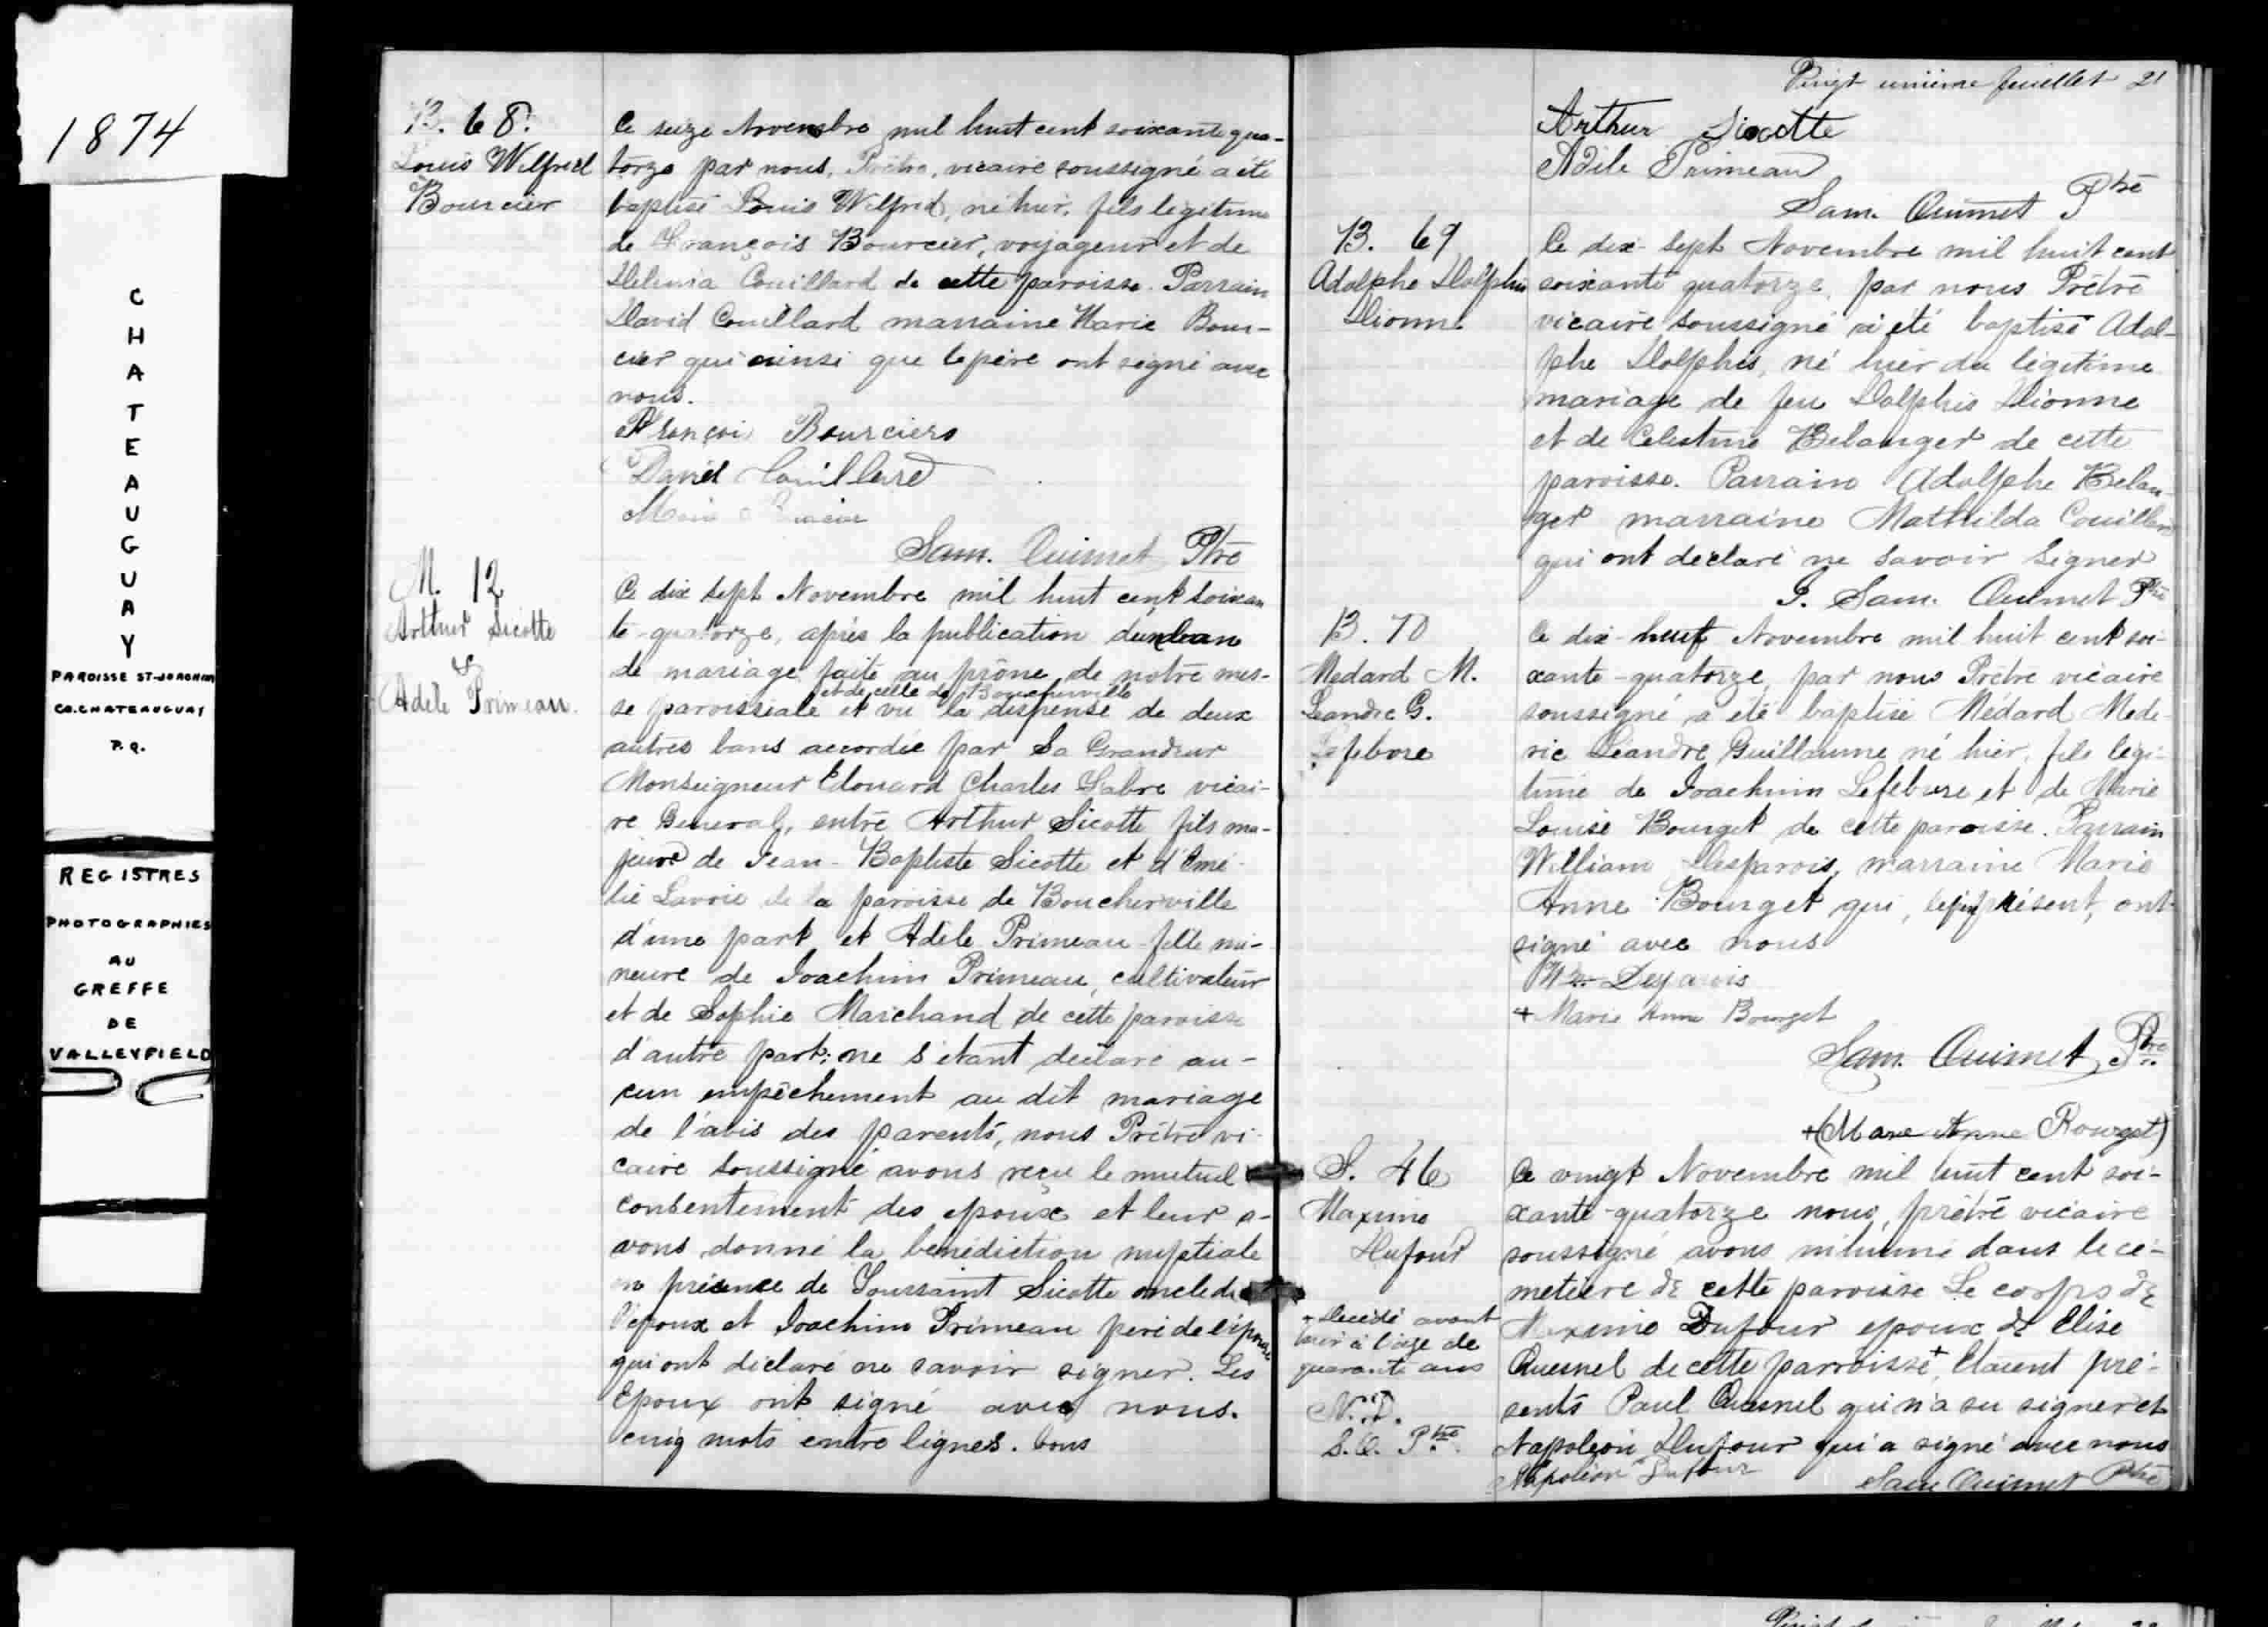 1874
CHATEAUGUAY
PAROISSE ST-JOACHIM
CO. CHATEAUGUAY
P.Q.
REGISTRES
PHOTOGRAPHIES
AU
GREFFE
DE
VALLEYFIELD
B. 68.
Louis Wilfred
Bourcier
Ce seize Novembre mil huit cent soixante qua-
torze par nous, Prêtre, vicaire soussigné a été
baptisé Louis Wilfred, né hier, fils légitime
de François Bourcier, voyageur et de
Couillard de cette paroisse. Parrain
David Couillard marraine Marie Bour-
cier qui ainsi que le père ont signé avec
nous.
François Bourciers
David Couillard
Sam. Ouimet Ptre
M. 12
Arthur Sicotte
&
Adele Primeau.
Ce dix sept Novembre mil huit cent soixan
te-quatorze, après la publication d'un ban
de mariage faite au prône de notre mes-
et de celle de Boucherville
se paroissiale et vu la dispense de deux
autres bans accordée par Sa Grandeur
Monseigneur Edouard Charles Fabre vicai-
re General, entre Arthur Sicotte fils ma-
jeur de Jean-Baptiste Sicotte et d'Emé-
lie Lavoie de la paroisse de Boucherville
d'une part et Adele Primeau fille mi-
neure de Joachim Primeau, cultivateur
et de Sophie Marchand de cette paroisse
d'autre part; ne s'étant déclaré au-
cun empêchement au dit mariage
de l'avis des parents, nous Prêtre vi-
caire soussigné avons reçu le mutuel
consentement des epoux et leur a-
vons donné la bénédiction nuptiale
en présence de Toussaint Sicotte oncle de
l'epoux et Joachim Primeau père de l'épouse
qui ont déclaré ne savoir signer. Les
Epoux ont signé avec nous.
cinq mots entre lignes. bons
Vingt unième feuillet 21
Arthur Sicotte
Adèle Primeau
Sam. Ouimet Ptre
B. 69
Adolphe Dolphis
Dionne
Ce dix-sept Novembre mil huit cent
soixante quatorze, par nous Prêtre
vicaire soussigné a été baptisé Adol-
phe Dolphis, né hier du légitime
mariage de feu Dolphis Dionne
et de Celestine Belanger de cette
paroisse. Parrain Adolphe Belan-
ger marraine Mathilda Couillard
qui ont déclaré ne savoir signer
J. Sam. Ouimet Ptre
B. 70
Medard M.
Leandre G.
Lefebvre
Ce dix-neuf Novembre mil huit cent soi-
xante-quatorze, par nous Prêtre vicaire
soussigné a été baptisé Médard Mede-
ric Léandre Guillaume né hier, fils légi-
time de Joachim Lefebvre et de Marie
Louise Bourget de cette paroisse. Parrain
William Desparois, marraine Marie
Anne Bourget qui, présent, ont
signé avec nous
Wm Desparois
+ Marie Anne Bourget
Sam. Ouimet Ptre
+(Marie Anne Bourget)
S. 46
Maxime
Dufour
Ce vingt Novembre mil huit cent soi-
xante-quatorze nous, prêtre vicaire
soussigné avons inhumé dans le ci-
metière de cette paroisse Le corps de
Maxime Dufour epoux de Elise
Quesnel de cette parroisse+. Etaient pré-
sents Paul Quesnel qui n'a su signer et
Napoléon Dufour qui a signé avec nous
Napoléon Dufour
Sam Ouimet Ptre
+ Décédé avant
hier à l'âge de
quarante ans
N.D.
S.O. Ptre